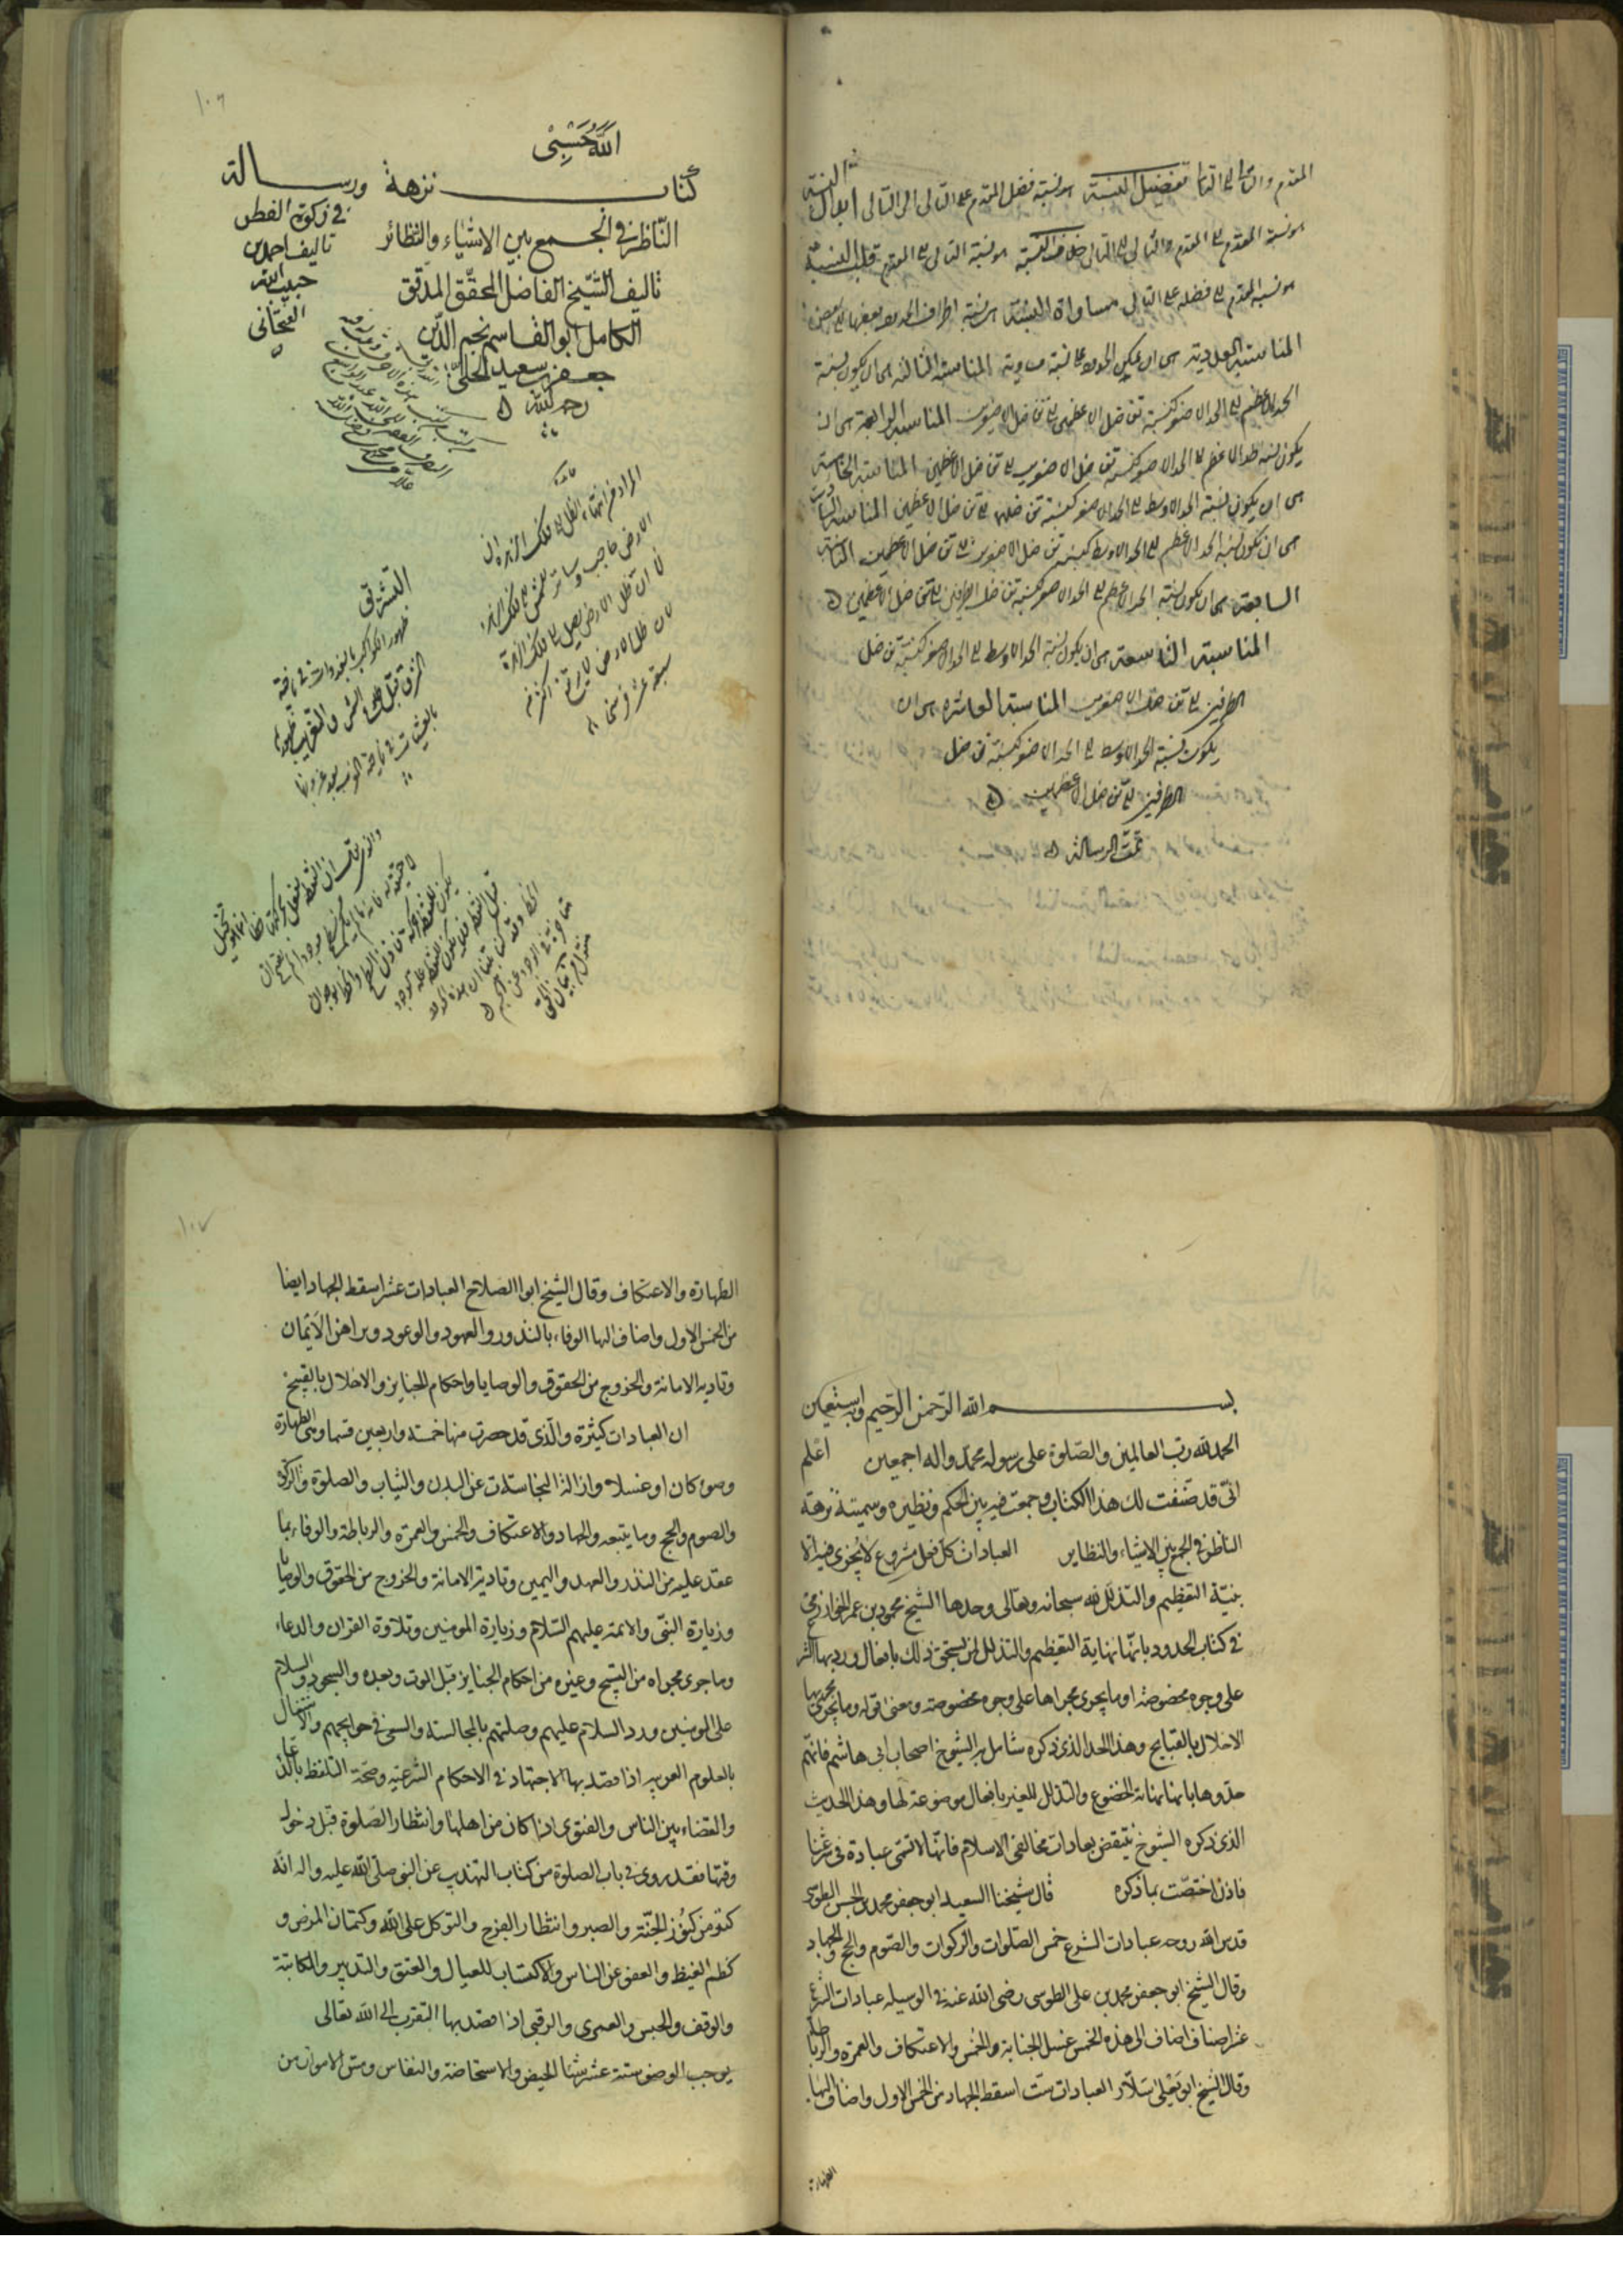 المقدم والتالي الى التالي تفضيل النسبة هو نسبة فضل المقدم على التالى الى التالى ابدال النسبة
هو نسبة المقدم الى المقدم والتالى الى التالى خلاف النسبة هو نسبة التالى الى المقدم قلب النسبة
هو نسبة المقدم الى فضله على التالى مساواة النسبة هى نسبة اطراف الحدود بعضها الى بعض
المناسبة العددية هى ان يكون الحدود على نسبة المناسبة الثالثة هى ان يكون نسبة
الحد الاعظم الى الحد الاصغر كنسبة تفاضل الاعظمين الى تفاضل الاصغرين المناسبة الرابعة هى ان
يكون نسبة الحد الاعظم الى الحد الاصغر كنسبة تفاضل الاصغرين الى تفاضل الاعظمين المناسبة الخامسة
هى ان يكون نسبة الحد الاوسط الى الحد الاصغر كنسبة تفاضلهما الى تفاضل الاعظمين المناسبة السادسة
هى ان يكون نسبة الحد الاعظم الى الحد الاوسط كنسبة تفاضل الاصغرين الى تفاضل الاعظمين المناسبة
السابعة هى ان يكون نسبة الحد الاعظم الى الحد الاصغر كنسبة تفاضل الطرفين الى تفاضل الاعظمين
المناسبة التاسعة هى ان يكون نسبة الحد الاوسط الى الحد الاصغر كنسبة تفاضل
الطرفين الى تفاضل الاصغرين المناسبة العاشرة هى ان
يكون نسبة الحد الاوسط الى الحد الاصغر كنسبة تفاضل
الطرفين الى تفاضل الاعظمين
تمت الرسالة
١٠٦
الله حسبى
كتاب نزهة
الناظر فى الجمع بين الاشياء والنظائر
تاليف الشيخ الفاضل المحقق المدقق
الكامل ابو القاسم نجم الدين
جعفر بن سعيد الحلى
رحمه الله
ورسالة
فى زكوة الفطر
تاليف احمد بن
حبيب الله
المراد من انتهاء الظل الى فلك الزهرة ان
الارض حاجب وساتر للشمس الى فلك الزهرة
لا ان ظل الارض يصل الى فلك الزهرة
لان ظل الارض لا يرتفع اكثر من
سبعة عشر فرسخا
التشريق
ظهور الكواكب بالغدوات فى ناحية
الشرق قبل طلوع الشمس والتغريب ظهورها
بالعشيات فى ناحية المغرب بعد غروبها
بسم الله الرحمن الرحيم وبه نستعين
الحمد لله رب العالمين والصلوة على رسوله محمد واله اجمعين اعلم
انى قد صنفت لك هذا الكتاب وجمعت فيه بين الحكم ونظيره وسميته نزهة
الناظر فى الجمع بين الاشياء والنظاير العبادات كل فعل مشروع لا يجزى فيه الا
بنية التعظيم والتذلل لله سبحانه وتعالى وحدها الشيخ محمود بن عمر الخوارزمى
فى كتاب الحدود بانها نهاية التعظيم والتذلل لمن يستحق ذلك بافعال ورد بها الشرع
على وجوه مخصوصة او ما يجرى مجراها على وجوه مخصوصة ومعنى قوله وما يجرى مجريها
الاخلال بالقبايح وهذا الحد الذى ذكره شامل الشيوخ اصحاب ابى هاشم فانهم
حدوها بانها نهاية الخضوع والتذلل للغير بافعال موضوعة لها وهذا الحديث
الذى ذكره الشيوخ ينتقض بعادات مخالفى الاسلام فانها لا تسمى عبادة فى شرعنا
فاذن اختصت بما ذكره قال شيخنا السعيد ابو جعفر محمد بن الحسن الطوسى
قدس الله روحه عبادات الشرع خمس الصلوات والزكوات والصوم والحج والجهاد
وقال الشيخ ابو جعفر محمد بن على الطوسى رضى الله عنه فى الوسيله عبادات الشرع
عشر اصناف اضاف الى هذه الخمس غسل الجنابة والخمس والاعتكاف والعمرة والرباط
وقال الشيخ ابو يعلى سلار العبادات ست اسقط الجهاد من الخمس الاول واضاف اليها
الطهارة
١٠٧
الطهارة والاعتكاف وقال الشيخ ابوا الصلاح العبادات عشر اسقط الجهاد ايضا
من الخمس الاول واضاف اليها الوفاء بالنذور والعهود والوعود وبراهن الايمان
وتادية الامانة والخروج من الحقوق والوصايا واحكام الجنايز والاخلال بالقبيح
ان العبادات كثيرة والذى قد حصرت منها خمسة واربعين قسما وهى الطهارة
وضوء كان او غسلا وازالة النجاسات عن البدن والثياب والصلوة والزكوة
والصوم والحج وما يتبعه والجهاد والاعتكاف والخمس والعمرة والرباطة والوفاء بما
عقد عليه من النذر والعهد واليمين وتادية الامانة والخروج من الحقوق والوصايا
وزيارة النبى والائمة عليهم السلام وزيارة المومنين وتلاوة القران والدعاء
وما جرى مجراه من التسبيح وغيره من احكام الجنايز قبل الموت وبعده والسجود والسلام
على المومنين ورد السلام عليهم وصلتهم بالمجالسة والسعى فى حوايجهم والاشتغال
بالعلوم العربيه اذا قصد بها الاجتهاد فى الاحكام الشرعيه وصحة التلفظ بالدعا
والقضاء بين الناس والفتوى اذا كان من اهلها وانتظار الصلوة قبل دخول
وقتها فقد روى فى باب الصلوة من كتاب التهذيب عن النبى صلى الله عليه واله انه
كنز من كنوز الجنة والصبر وانتظار الفرج والتوكل على الله وكتمان المرض و
كظم الغيظ والعفو عن الناس والاكتساب للعيال والعتق والتدبير والمكاتبة
والوقف والحبس والعمرى والرقبى اذا قصد بها التقرب الى الله تعالى
يوجب الوضوء ستة عشر شيئا الحيض والاستحاضة والنفاس ومس الاموات من